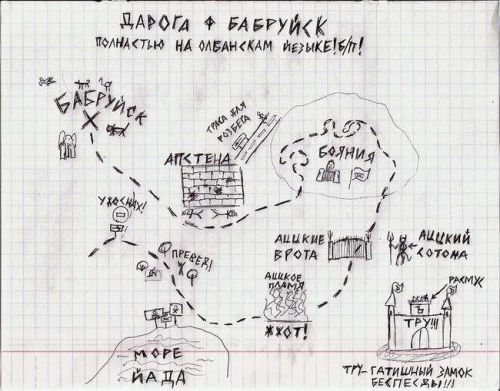 ДАРОГА Ф БАБРУЙСК
ПОЛНАСТЬЮ НА ОЛБАНСКАМ ЙЕЗЫКЕ! Б/П!
БАБРУЙСК
ТРАСА ДЛЯ
РОЗБЕГА
АПСТЕНА
БОЯНИЯ
УЖОСНИХ!
ПРЕВЕД!
АЦЦКИЕ
ВРОТА
АЦЦКИЙ
СОТОМА
АЦЦКОЕ
ПЛАМЯ
ЖЖОТ!
МОРЕ
ЙАДА
РАСМУС
Ъ
ТРУ!!!
ТРУ-ГАТИШНЫЙ ЗАМОК
БЕСПЕСДЫ!!!